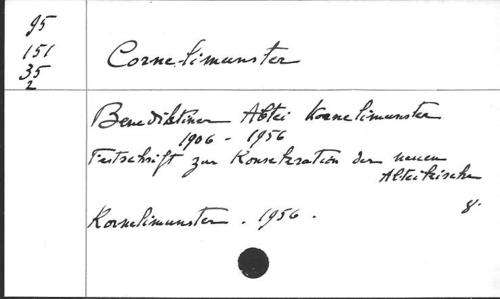 95
151
35
2
Cornelimunster
Benediktiner Abtei Kornelimunster
1906 - 1956
Festschrift zur Konsekration der neuen
Abteikirche
8.
Kornelimunster. 1956.